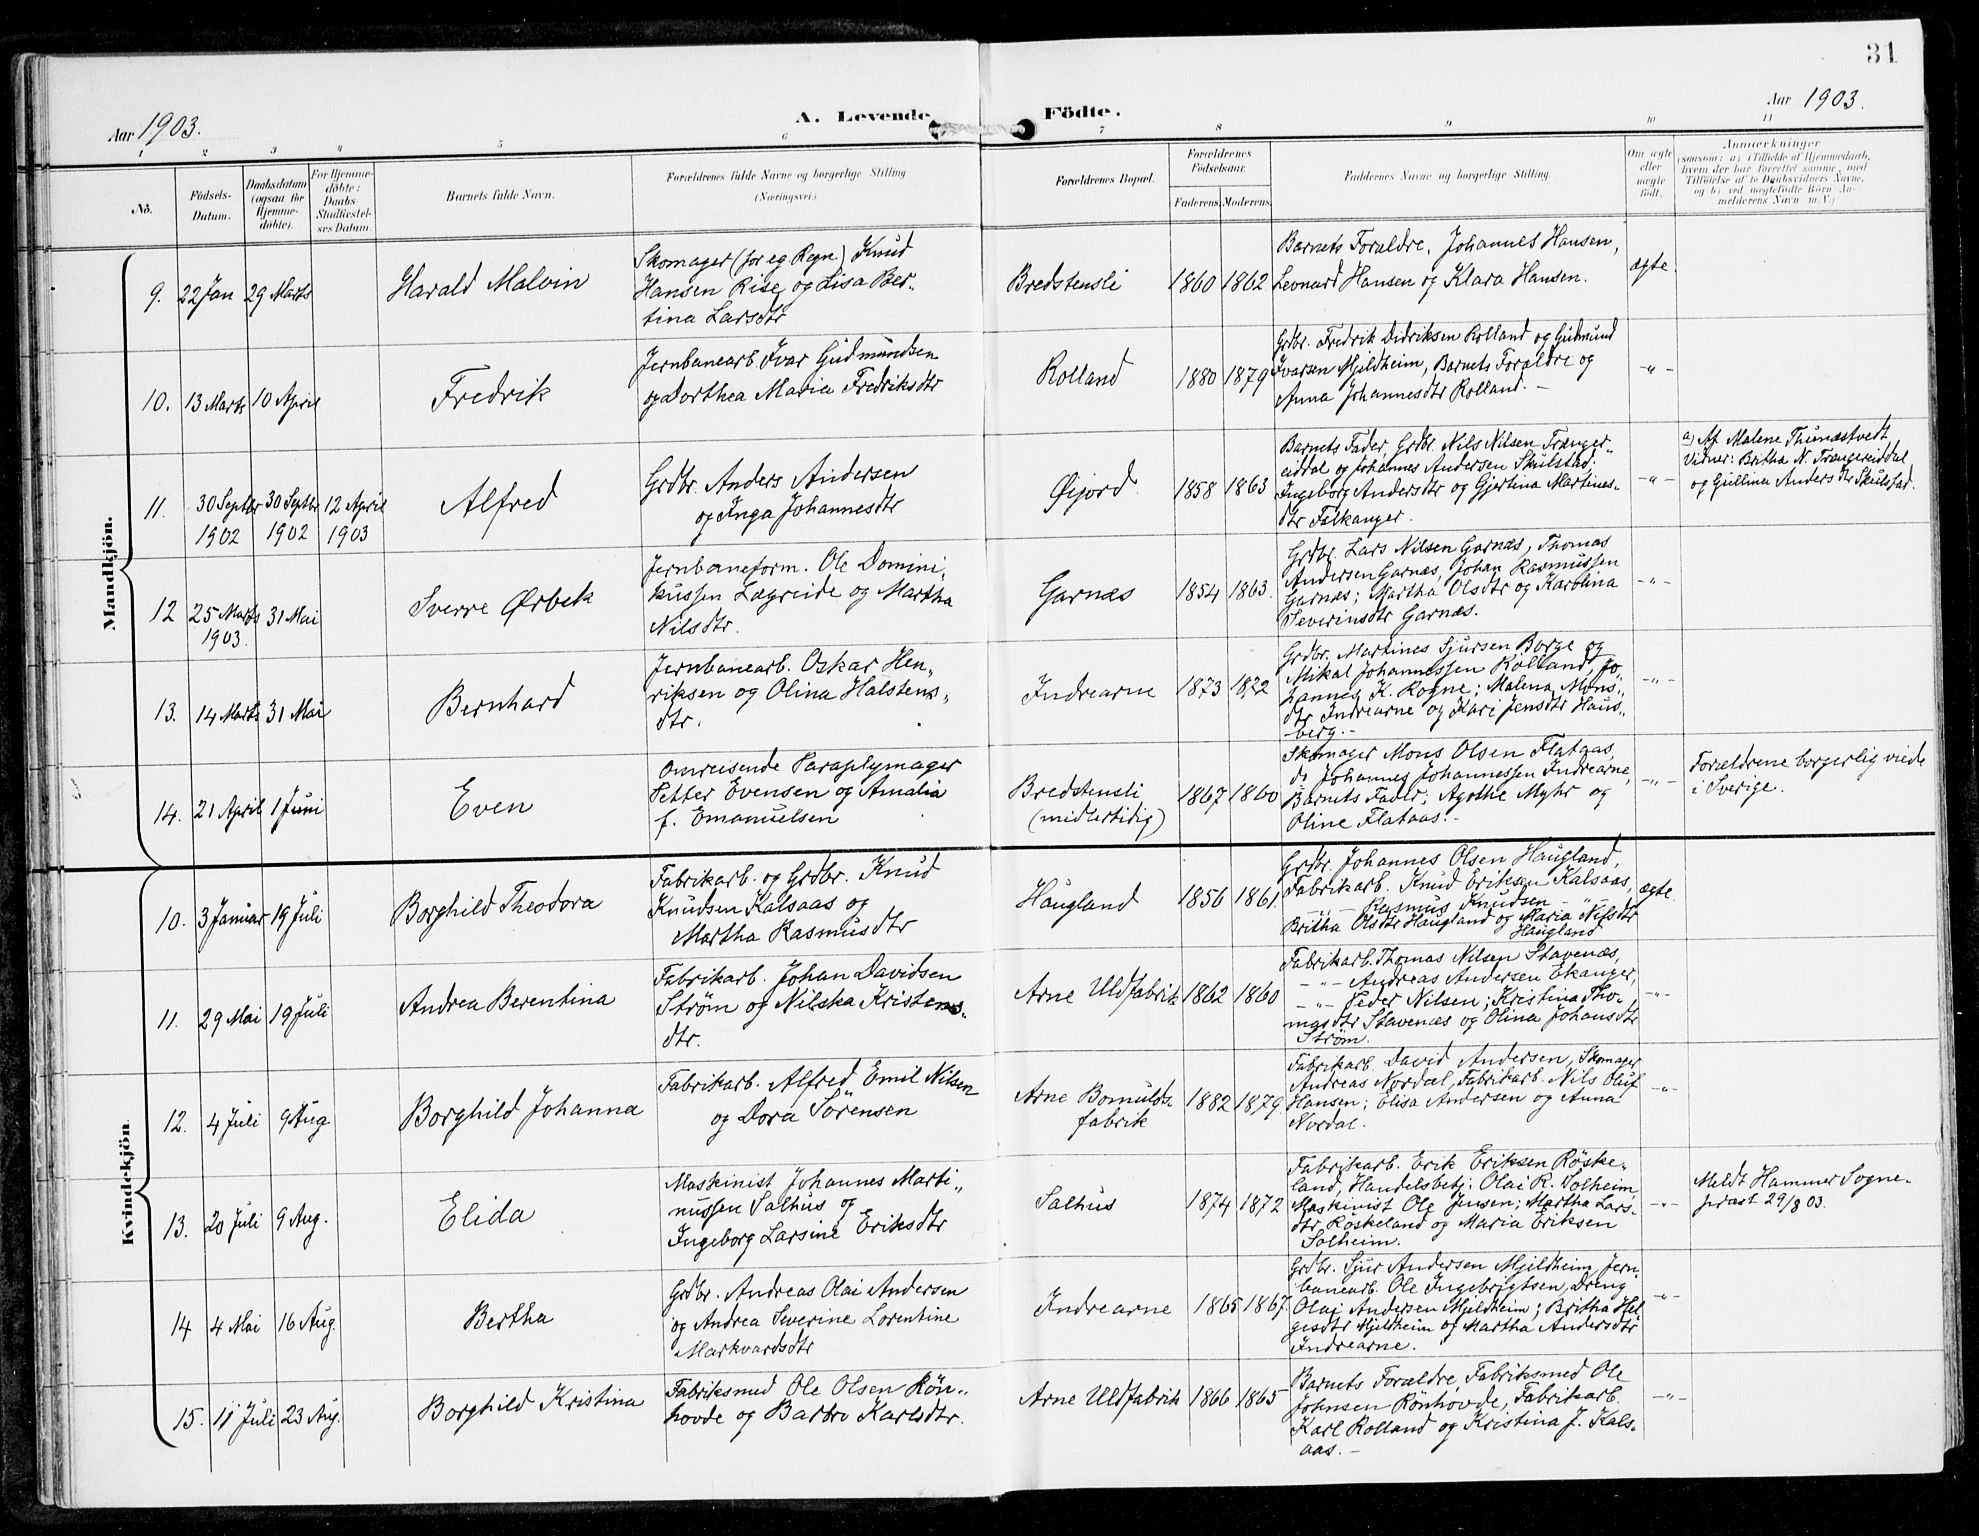 31
Aar 1903.
A. Levende
Födte.
Aar 1903.
1 2 3 4 5 6 7 8 9 10 11
No.
Födsels-
Datum.
Daabsdatum
(ogsaa for
Hjemme-
döbte).
For Hjemme-
döbte:
Daabs-
Stadfæstel-
ses Datum.
Barnets fulde Navn.
Forældrenes fulde Navne og borgerlige Stilling
(Næringsvei.)
Forældrenes Bopæl.
Forældrenes
Födselsaar.
Faderens. Moderens.
Faddernes Navne og borgerlige Stilling.
Om ægte
eller
uægte
födt.
Anmærkninger
(saasom: a) i Tilfælde af Hjemmedaab,
hvem der har forrettet samme, med
Tilföielse af to Daabsvidners Navne.
og b) ved uægtefödte Börn An-
melderens Navn m.V.)
Mandkjön.
9. 22 Jan 29 Marts
Harald Malvin
Skomager (for eg Regn.) Knud
Hansen Rise og Lisa Ber-
tina Larsdtr
Bredstensli
1860 1862
Barnets Forældre, Johannes Hansen,
Leonard Hansen og Klara Hansen.
ægte
10. 13 Marts 10 April
Fredrik
Jernbanearb. Ivar Gudmundsen
og Dorthea Maria Fredriksdtr
Rolland
1880 1879
Grdbr. Fredrik Didriksen Rolland og Gudmund
Ivarsen Mjeldheim, Barnets Forældre og
Anna Johannesdtr Rolland. —
-"-
11. 30 Septbr 30 Septbr 12 April
1902 1902 1903
Alfred
Grdbr. Anders Andersen
og Inga Johannesdtr
Øijord.
1858 1863
Barnets Fader, Grdbr. Nils Nilsen Trænger-
eiddal og Johannes Andersen Skulstad;
Ingeborg Andersdtr og Gjertina Martines-
dtr Falkanger.
-"-
a) Af Malene Thunæstvedt
Vidner: Britha N. Trængereiddal
og Gullina Andersdtr Skulstad.
12 25 Marts 31 Mai
1903.
Sverre Ørbek
Jernbaneform. Ole Domini-
kussen Lægreide og Martha
Nilsdtr.
Garnæs
1854 1863.
Grdbr. Lars Nilsen Garnæs, Thomas
Andersen Garnæs, Johan Rasmussen
Garnæs; Martha Olsdtr og Karolina
Severinsdtr Garnæs.
-"-
13. 14 Marts 31 Mai
Bernhard
Jernbanearb. Oskar Hen-
riksen og Olina Halstens-
dtr.
Indrearne
1873 1872
Grdbr. Martines Sjursen Borge og
Mikal Johannessen Rolland, Jo-
hannes K. Rogne; Malena Mons-
dtr Indrearne og Kari Jensdtr Haus-
berg. -
-"-
14. 21 April 1 Juni
Even
Omreisende Paraplymager
Petter Evensen og Amalia
f. Emanuelsen
Bredstensli
(midlertidig)
1867 1860
Skomager Mons Olsen Flataas,
do Johannes Johannessen Indrearne,
Barnets Fader; Agothe Myhr og
Oline Flataas. -
-"-
Forældrene borgerlig viede
i Sverige.
Kvindekjön.
10. 3 Januar 19 Juli
Borghild Theodora
Fabrikarb. og Grdbr. Knud
Knudsen Kalsaas og
Martha Rasmusdtr
Haugland
1856 1861.
Grdbr. Johannes Olsen Haugland,
Fabrikarb. Knud Eriksen Kalsaas,
-"- Rasmus Knudsen -"-
Britha Olsdtr Haugland og Maria Nilsdtr
Haugland
ægte
11. 29 Mai 19 Juli
Andrea Berentina
Fabrikarb. Johan Davidsen
Strøm og Nilska Kristens-
dtr.
Arne Uldfabrik
1862 1860
Fabrikarb. Thomas Nilsen Stavenæs,
-"- Andreas Andersen Ekanger,
-"- Peder Nilsen; Kristina Tho-
masdtr Stavenæs og Olina Johansdtr
Strøm.
-"-
12. 4 Juli 9 Aug
Borghild Johanna
Fabrikarb. Alfred Emil Nilsen
og Dora Sørensen
Arne Bomulds-
fabrik
1882 1879.
Fabrikarb. David Andersen, Skomager
Andreas Nordal, Fabrikarb. Nils Oluf
Hansen; Elisa Andersen og Anna
Nordal.
-"-
13. 20 Juli 9 Aug.
Elida
Maskinist Johannes Marti-
nussen Salhus og
Ingeborg Larsine Eriksdtr
Salhus
1874 1872
Fabrikarb. Erik Eriksen Røske-
land, Handelsbetj. Olai R. Solheim,
Maskinist Ole Jensen; Martha Lars-
dtr Røskeland og Maria Eriksen
Solheim.
-"-
Meldt Hammer Sogne-
prest 29/8 03.
14 4 Mai 16 Aug.
Bertha
Grdbr. Andreas Olai Andersen
og Andrea Severine Lorentine
Markvardsdtr
Indrearne
1865 1867.
Grdbr. Sjur Andersen Mjeldheim, Jern-
banearb. Ole Ingebrigtsen, Dreng
Olai Andersen Mjeldheim; Britha Hel-
gesdtr Mjeldheim og Martha Andersdtr
Indrearne.
-"-
15. 11 Juli 23 Aug.
Borghild Kristina
Fabriksmed Ole Olsen Røn-
hovde og Barbro Karlsdtr.
Arne Uldfabrik
1866 1865
Barnets Forældre, Fabriksmed Ole
Johnsen Rønhovde, Fabrikarb.
Karl Rolland og Kristina J. Kals-
aas. -
-"-